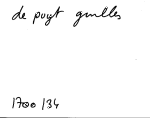 de puyt gunlles
1700 / 34